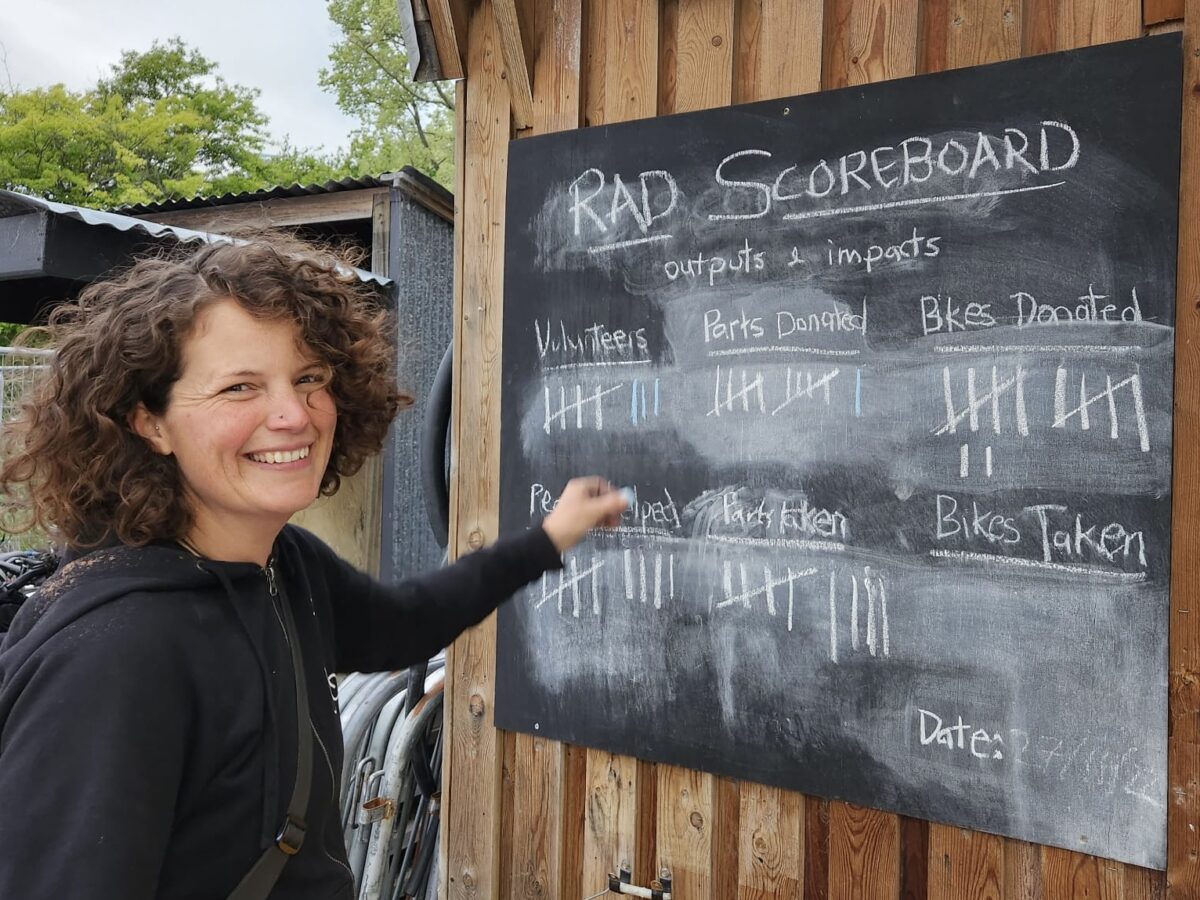 RAD SCOREBOARD
outputs & impacts
Volunteers Parts Donated Bikes Donated
Parts taken Bikes Taken
Date: